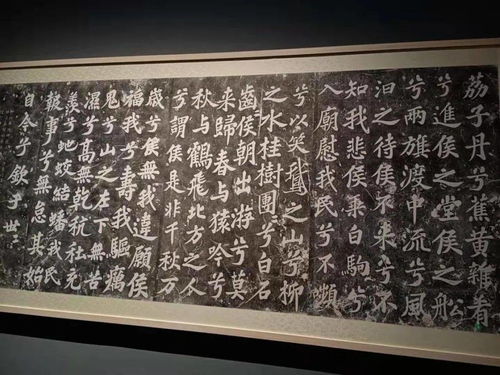 荔子丹兮蕉黄雜肴
兮進侯之堂侯之舩
兮兩旗渡中流兮風
汩之待侯不来兮不
知我悲侯乗白駒兮
入廟慰我民兮不嚬
兮以笑鵝之山兮柳
之水桂樹團兮白石
齒侯朝出游兮莫
来歸春与猿吟兮
秋与鶴飛北方之人
兮謂侯是非千秋万
歲兮侯無我違願侯
福我兮壽我驅癘
鬼兮山之左下無苦
濕兮髙無乾秔稌充
羨兮虵蛟結蟠我民
報事兮無怠其始
自今兮欽于世〻